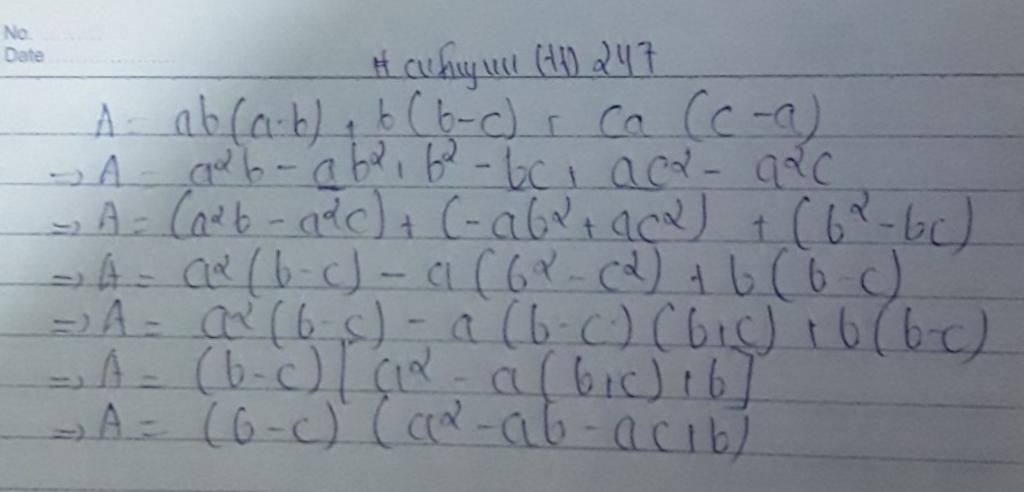 No.
Date
(11) 247
A = ab(a-b) + b(b-c) + ca (c-a)
=> A = a²b - ab² + b² - bc + ac² - a²c
=> A = (a²b - a²c) + (-ab² + ac²) + (b² - bc)
=> A = a²(b-c) - a(b² - c²) + b(b-c)
=> A = a²(b-c) - a(b-c)(b+c) + b(b-c)
=> A = (b-c)[a² - a(b+c) + b]
=> A = (b-c)(a² - ab - ac + b)